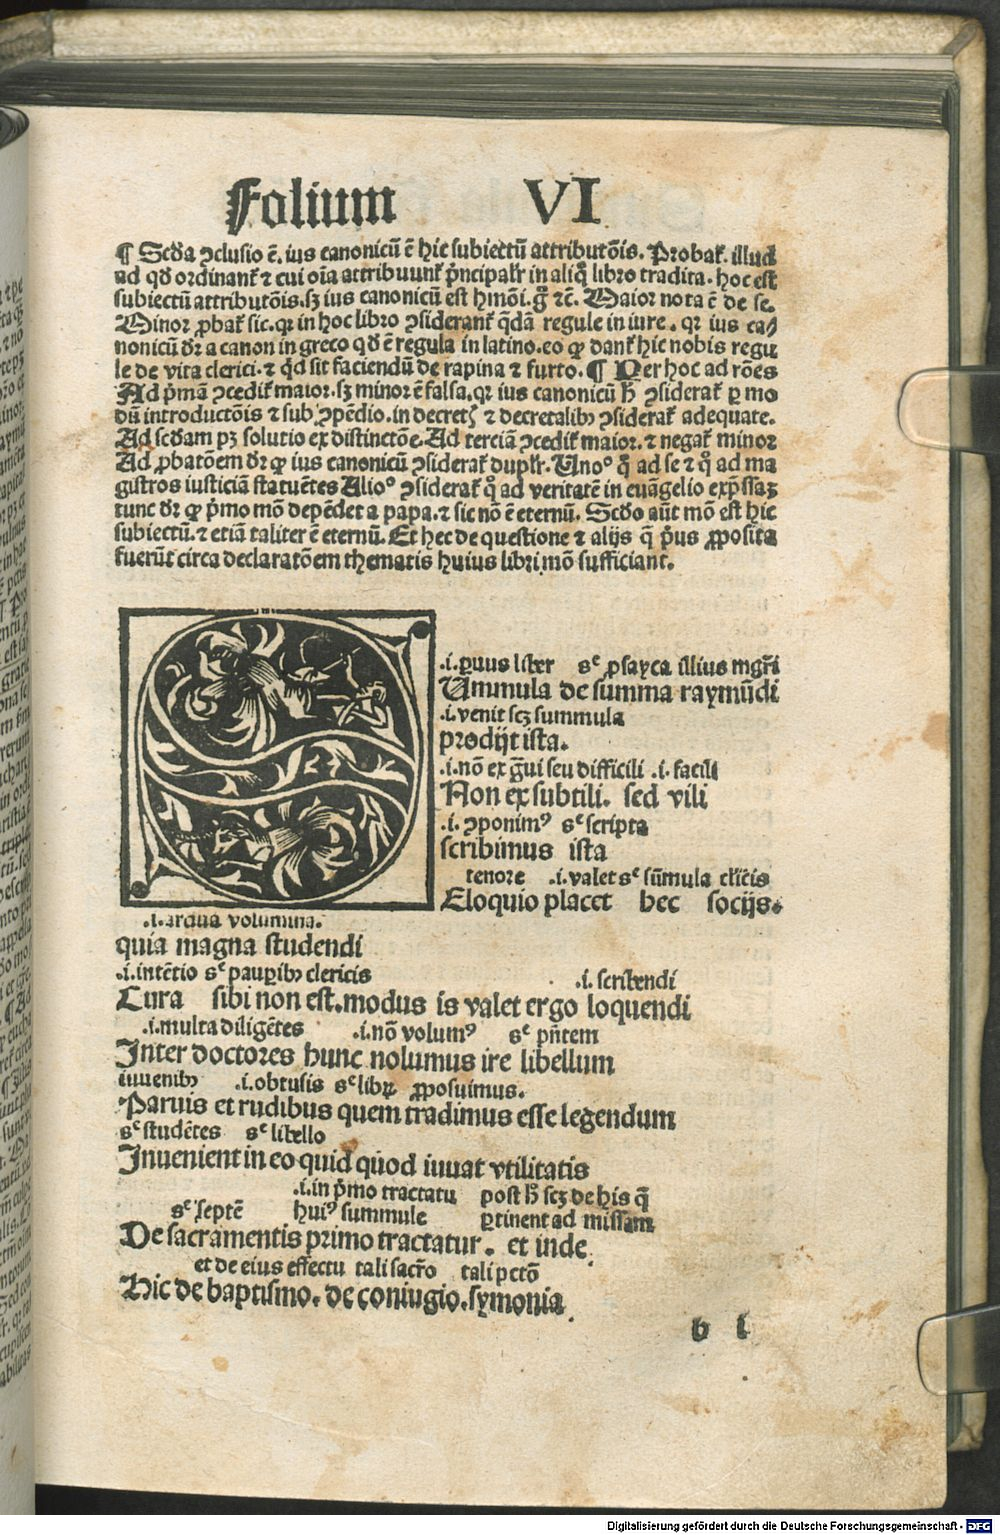 Folium VI
¶ Scd̓a ꝯclusio ē. ius canonicū ē hic subiectū attributōis. Probat̓. illud
ad qd̓ ordinant̓ ⁊ cui oīa attribuunt̓ p̄ncipalr̓ in aliq̄ libro tradita. hoc est
subiectū attributōis. sꝫ ius canonicū est hmōi. gͦ ⁊c̄. Maior nota ē de se.
Minor ꝓbat̓ sic. qꝛ in hoc libro ꝯsiderant̓ qd̓ā regule in iure. qꝛ ius ca⸗
nonicū dr̓ a canon in greco qd̓ ē regula in latino. eo ꝙ dant̓ hic nobis regu
le de vita clerici. ⁊ qd̓ sit faciendū de rapina ⁊ furto. ¶ Per hoc ad rōes
Ad p̄mā ꝯcedit̓ maior. sꝫ minor ē falsa. qꝛ ius canonicū h̄ ꝯsiderat̓ ꝑ mo
dū introductōis ⁊ sub ꝯpēdio. in decretꝭ ⁊ decretalibꝰ ꝯsiderat̓ adequate.
Ad scd̓am pꝫ solutio ex distinctōe. Ad terciā ꝯcedit̓ maior. ⁊ negat̓ minor
Ad ꝓbatōem dr̓ ꝙ ius canonicū ꝯsiderat̓ duplr̓. Unoº q̄ ad se ⁊ q̄ ad ma
gistros iusticiā statuētes Alioº ꝯsiderat̓ q̄ ad veritatē in euāgelio exp̄ssaꝫ
tunc dr̓ ꝙ p̄mo mō depēdet a papa. ⁊ sic nō ē eternū. Scd̓o aūt mō est hic
subiectū. ⁊ etiā taliter ē eternū. Et hec de questione ⁊ alijs q̄ p̄us ꝓposita
fuerūt circa declaratōem thematis huius libri mō sufficiant.
.i. ꝑuus liber sᶜ ꝓsayca illius mgr̄i
Ummula de summa raymūdi
.i. venit scꝫ summula
prodijt ista.
.i. nō ex gͣui seu difficili .i. facili
Non ex subtili. sed vili
.i. ꝯponimꝰ sᶜ scripta
scribimus ista
tenore .i. valet sᶜ sūmula cl̓icis
Eloquio placet hec socijs.
.i. ardua volumina.
quia magna studendi
.i. intētio sᶜ pauꝑibꝰ clericis .i. scribendi
Cura sibi non est. modus is valet ergo loquendi
.i. multa diligētes .i. nō volumꝰ sᶜ p̄ntem
Inter doctores hunc nolumus ire libellum
iuuenibꝰ .i. obtusis sᶜ libꝝ ꝓposuimus.
Paruis et rudibus quem tradimus esse legendum
sᶜ studētes sᶜ libello
Inuenient in eo quid quod iuuat vtilitatis
.i. in p̄mo tractatu post h̄ scꝫ de his q̄
sᶜ septē huiꝰ summule ꝑtinent ad missam
De sacramentis primo tractatur. et inde
et de eius effectu tali sacr̄o tali pctō
Hic de baptismo. de coniugio. symonia
b i
Digitalisierung gefördert durch die Deutsche Forschungsgemeinschaft - DFG